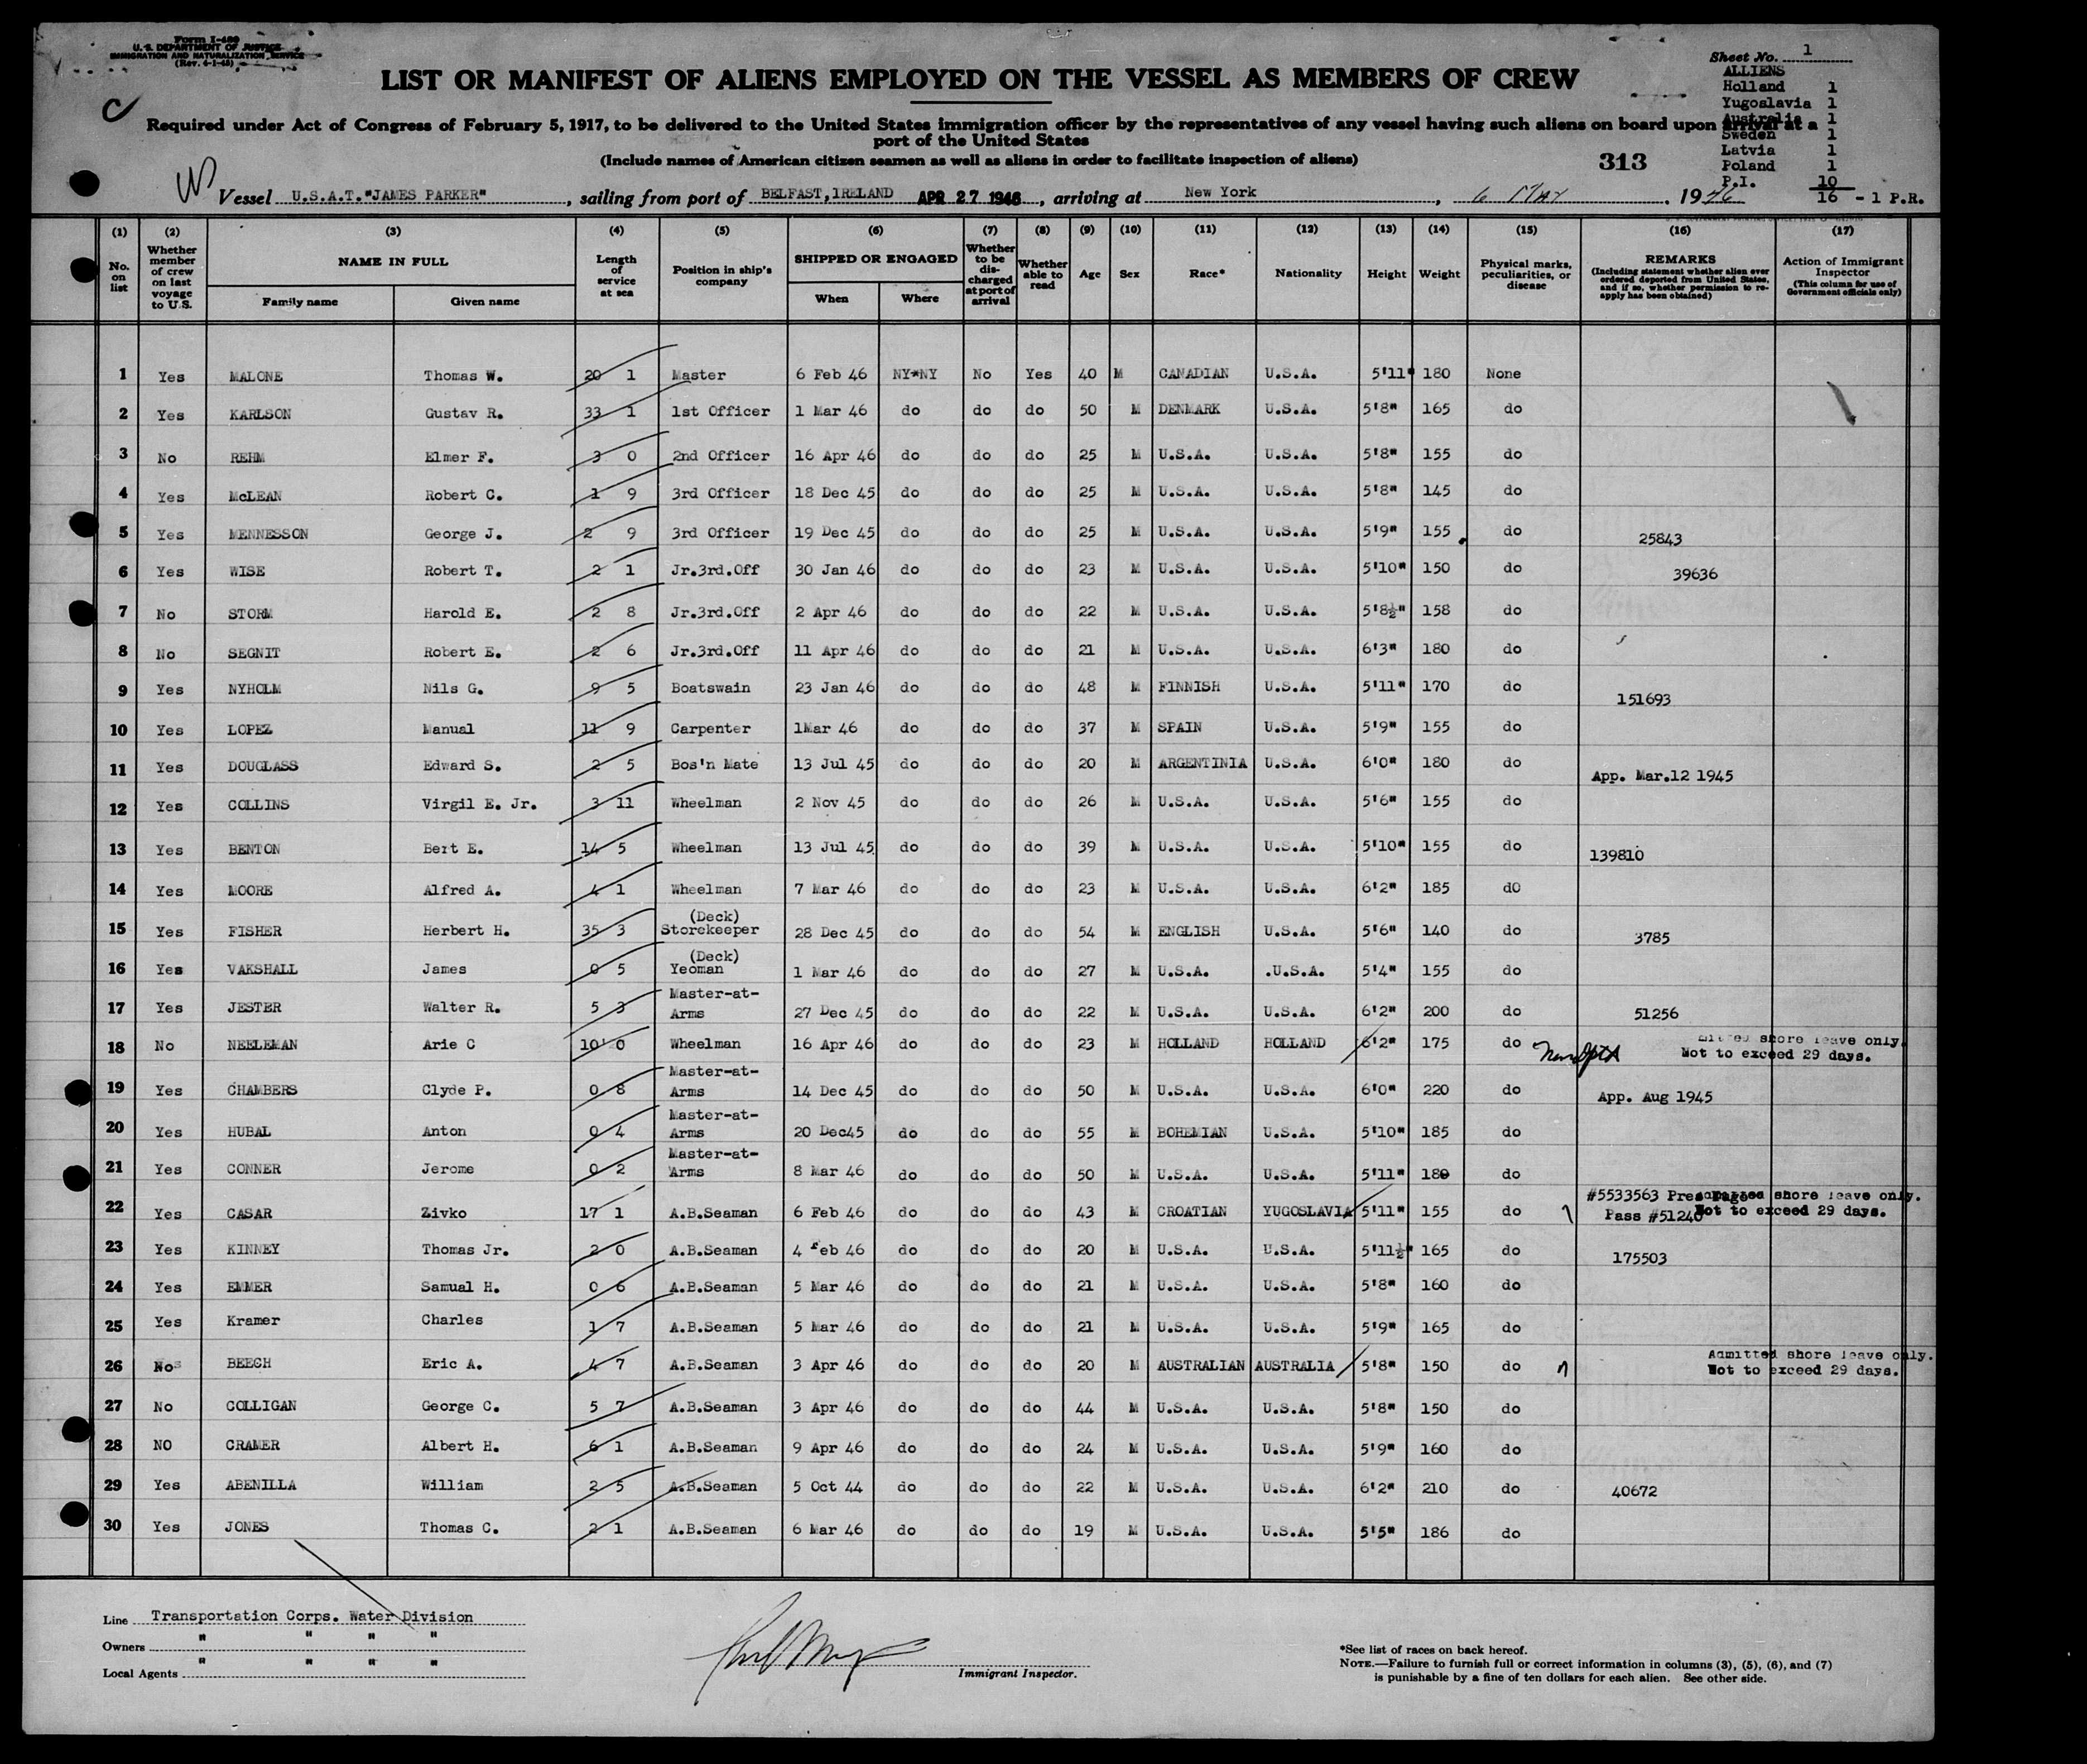 Form I-489
U. S. DEPARTMENT OF JUSTICE
IMMIGRATION AND NATURALIZATION SERVICE
(Rev. 4-1-45)
Sheet No. 1
ALLIENS
Holland 1
Yugoslavia 1
Australia 1
Sweden 1
Latvia 1
Poland 1
P.I. 10
16 - 1 P.R.
LIST OR MANIFEST OF ALIENS EMPLOYED ON THE VESSEL AS MEMBERS OF CREW
Required under Act of Congress of February 5, 1917, to be delivered to the United States immigration officer by the representatives of any vessel having such aliens on board upon arrival at a
port of the United States
(Include names of American citizen seamen as well as aliens in order to facilitate inspection of aliens)
313
Vessel U.S.A.T."JAMES PARKER", sailing from port of BELFAST,IRELAND APR 27 1946, arriving at New York, 6 MAY, 1946
(1) (2) (3) (4) (5) (6) (7) (8) (9) (10) (11) (12) (13) (14) (15) (16) (17)
No. on list
Whether member of crew on last voyage to U.S.
NAME IN FULL
Family name
Given name
Length of service at sea
Position in ship's company
SHIPPED OR ENGAGED
When
Where
Whether to be discharged at port of arrival
Whether able to read
Age
Sex
Race*
Nationality
Height
Weight
Physical marks, peculiarities, or disease
REMARKS
(Including statement whether alien ever ordered deported from United States, and if so, whether permission to reapply has been obtained)
Action of Immigrant Inspector
(This column for use of Government officials only)
1 Yes MALONE Thomas W. 20 1 Master 6 Feb 46 NY*NY No Yes 40 M CANADIAN U.S.A. 5'11" 180 None
2 Yes KARLSON Gustav R. 33 1 1st Officer 1 Mar 46 do do do 50 M DENMARK U.S.A. 5'8" 165 do
3 No REHM Elmer F. 3 0 2nd Officer 16 Apr 46 do do do 25 M U.S.A. U.S.A. 5'8" 155 do
4 Yes McLEAN Robert C. 1 9 3rd Officer 18 Dec 45 do do do 25 M U.S.A. U.S.A. 5'8" 145 do
5 Yes MENNESSON George J. 2 9 3rd Officer 19 Dec 45 do do do 25 M U.S.A. U.S.A. 5'9" 155 do 25843
6 Yes WISE Robert T. 2 1 Jr.3rd.Off 30 Jan 46 do do do 23 M U.S.A. U.S.A. 5'10" 150 do 39636
7 No STORM Harold E. 2 8 Jr.3rd.Off 2 Apr 46 do do do 22 M U.S.A. U.S.A. 5'8½" 158 do
8 No SEGNIT Robert E. 2 6 Jr.3rd.Off 11 Apr 46 do do do 21 M U.S.A. U.S.A. 6'3" 180 do
9 Yes NYHOLM Nils G. 9 5 Boatswain 23 Jan 46 do do do 48 M FINNISH U.S.A. 5'11" 170 do 151693
10 Yes LOPEZ Manual 11 9 Carpenter 1Mar 46 do do do 37 M SPAIN U.S.A. 5'9" 155 do
11 Yes DOUGLASS Edward S. 2 5 Bos'n Mate 13 Jul 45 do do do 20 M ARGENTINIA U.S.A. 6'0" 180 do App. Mar.12 1945
12 Yes COLLINS Virgil E. Jr. 3 11 Wheelman 2 Nov 45 do do do 26 M U.S.A. U.S.A. 5'6" 155 do
13 Yes BENTON Bert E. 14 5 Wheelman 13 Jul 45 do do do 39 M U.S.A. U.S.A. 5'10" 155 do 139810
14 Yes MOORE Alfred A. 4 1 Wheelman 7 Mar 46 do do do 23 M U.S.A. U.S.A. 6'2" 185 dO
15 Yes FISHER Herbert H. 35 3 (Deck) Storekeeper 28 Dec 45 do do do 54 M ENGLISH U.S.A. 5'6" 140 do 3785
16 Yes VAKSHALL James 0 5 (Deck) Yeoman 1 Mar 46 do do do 27 M U.S.A. .U.S.A. 5'4" 155 do
17 Yes JESTER Walter R. 5 3 Master-at-Arms 27 Dec 45 do do do 22 M U.S.A. U.S.A. 6'2" 200 do 51256
18 No NEELEMAN Arie C 10 0 Wheelman 16 Apr 46 do do do 23 M HOLLAND HOLLAND 6'2" 175 do shore leave only. Not to exceed 29 days.
19 Yes CHAMBERS Clyde P. 0 8 Master-at-Arms 14 Dec 45 do do do 50 M U.S.A. U.S.A. 6'0" 220 do App. Aug 1945
20 Yes HUBAL Anton 0 4 Master-at-Arms 20 Dec45 do do do 55 M BOHEMIAN U.S.A. 5'10" 185 do
21 Yes CONNER Jerome 0 2 Master-at-Arms 8 Mar 46 do do do 50 M U.S.A. U.S.A. 5'11" 180 do
22 Yes CASAR Zivko 17 1 A.B.Seaman 6 Feb 46 do do do 43 M CROATIAN YUGOSLAVIA 5'11" 155 do #5533563 Pres Admitted shore leave only. Pass #51240 Not to exceed 29 days.
23 Yes KINNEY Thomas Jr. 2 0 A.B.Seaman 4 Feb 46 do do do 20 M U.S.A. U.S.A. 5'11½" 165 do 175503
24 Yes EMMER Samual H. 0 6 A.B.Seaman 5 Mar 46 do do do 21 M U.S.A. U.S.A. 5'8" 160 do
25 Yes Kramer Charles 1 7 A.B.Seaman 5 Mar 46 do do do 21 M U.S.A. U.S.A. 5'9" 165 do
26 No BEECH Eric A. 4 7 A.B.Seaman 3 Apr 46 do do do 20 M AUSTRALIAN AUSTRALIA 5'8" 150 do Admitted shore leave only. Not to exceed 29 days.
27 No COLLIGAN George C. 5 7 A.B.Seaman 3 Apr 46 do do do 44 M U.S.A. U.S.A. 5'8" 150 do
28 NO CRAMER Albert H. 6 1 A.B.Seaman 9 Apr 46 do do do 24 M U.S.A. U.S.A. 5'9" 160 do
29 Yes ABENILLA William 2 5 A.B.Seaman 5 Oct 44 do do do 22 M U.S.A. U.S.A. 6'2" 210 do 40672
30 Yes JONES Thomas C. 2 1 A.B.Seaman 6 Mar 46 do do do 19 M U.S.A. U.S.A. 5'5" 186 do
Line Transportation Corps. Water Division
Owners " " " "
Local Agents " " " "
Immigrant Inspector.
*See list of races on back hereof.
NOTE.—Failure to furnish full or correct information in columns (3), (5), (6), and (7)
is punishable by a fine of ten dollars for each alien. See other side.